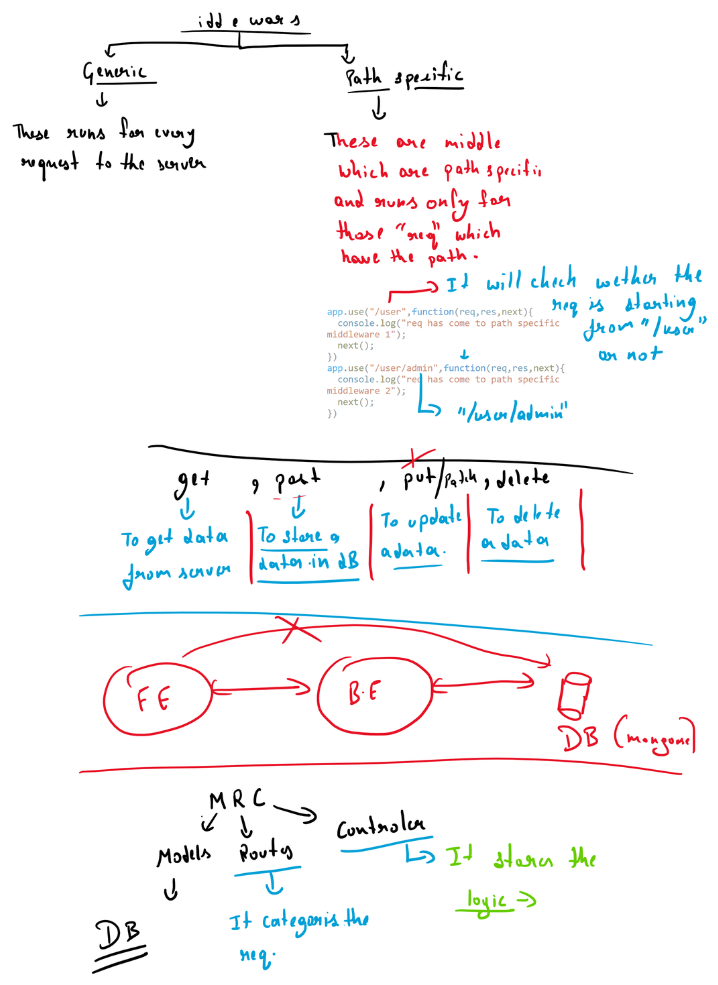 idd e wars
Generic
Path specific
These runs for every
request to the server
These are middle
which are path specific
and runs only for
those "req" which
have the path.
It will check wether the
req is starting
from "/user"
or not
app.use("/user",function(req,res,next){
console.log("req has come to path specific
middleware 1");
next();
})
app.use("/user/admin",function(req,res,next){
console.log("req has come to path specific
middleware 2");
next();
})
"/user/admin"
get , post , put/Patch, delete
To get data
from server
To store a
data in dB
To update
a data.
To delete
a data
FE
B.E
DB (mongose)
MRC
Models
Routes
Controler
DB
It categoris the
req.
It stores the
logic